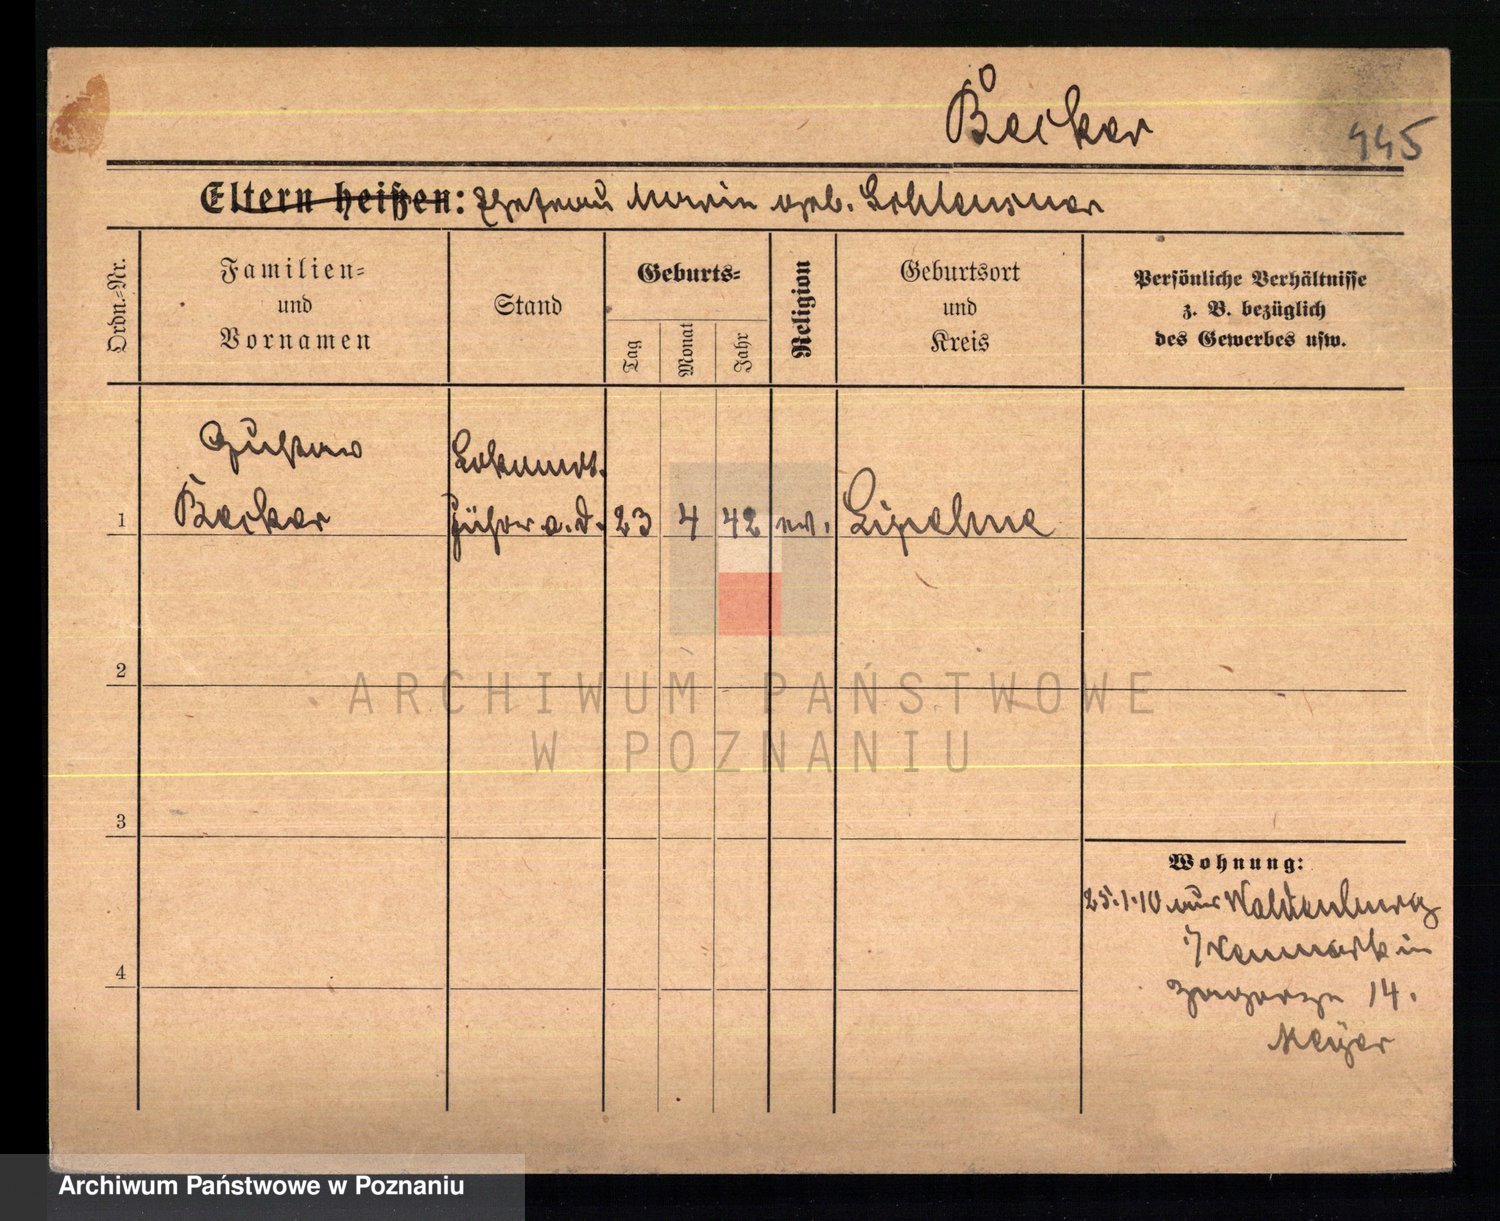 Becker
445
Eltern heißen: Ehefrau Marie geb. Schleusner
Ordn.-Nr.
Familien-
und
Vornamen
Stand
Geburts-
Tag
Monat
Jahr
Religion
Geburtsort
und
Kreis
Persönliche Verhältnisse
z. B. bezüglich
des Gewerbes usw.
Gustav
Becker
führer a. D.
1
23 4 42 ev. Lipehne
2
3
4
Wohnung:
25.1.10 aus
i/ Neumark in
14.
Meyer
ARCHIWUM PAŃSTWOWE
W POZNANIU
Archiwum Państwowe w Poznaniu